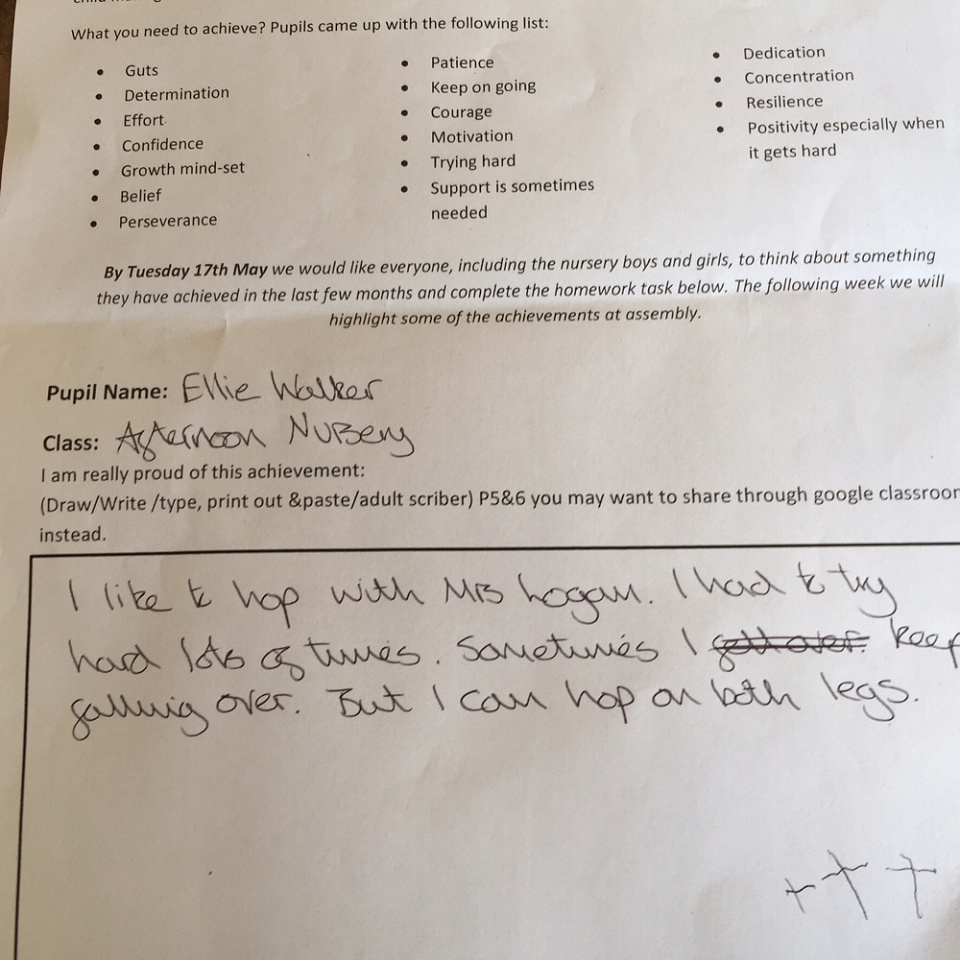 What you need to achieve? Pupils came up with the following list:
• Guts
• Determination
• Effort
• Confidence
• Growth mind-set
• Belief
• Perseverance
• Patience
• Keep on going
• Courage
• Motivation
• Trying hard
• Support is sometimes
needed
• Dedication
• Concentration
• Resilience
• Positivity especially when
it gets hard
By Tuesday 17th May we would like everyone, including the nursery boys and girls, to think about something
they have achieved in the last few months and complete the homework task below. The following week we will
highlight some of the achievements at assembly.
Pupil Name: Ellie Walker
Class: Afternoon Nursery
I am really proud of this achievement:
(Draw/Write /type, print out &paste/adult scriber) P5&6 you may want to share through google classroom
instead.
I like to hop with Mrs Logan. I had to try
hard lots of times. Sometimes I keep
falling over. But I can hop on both legs.